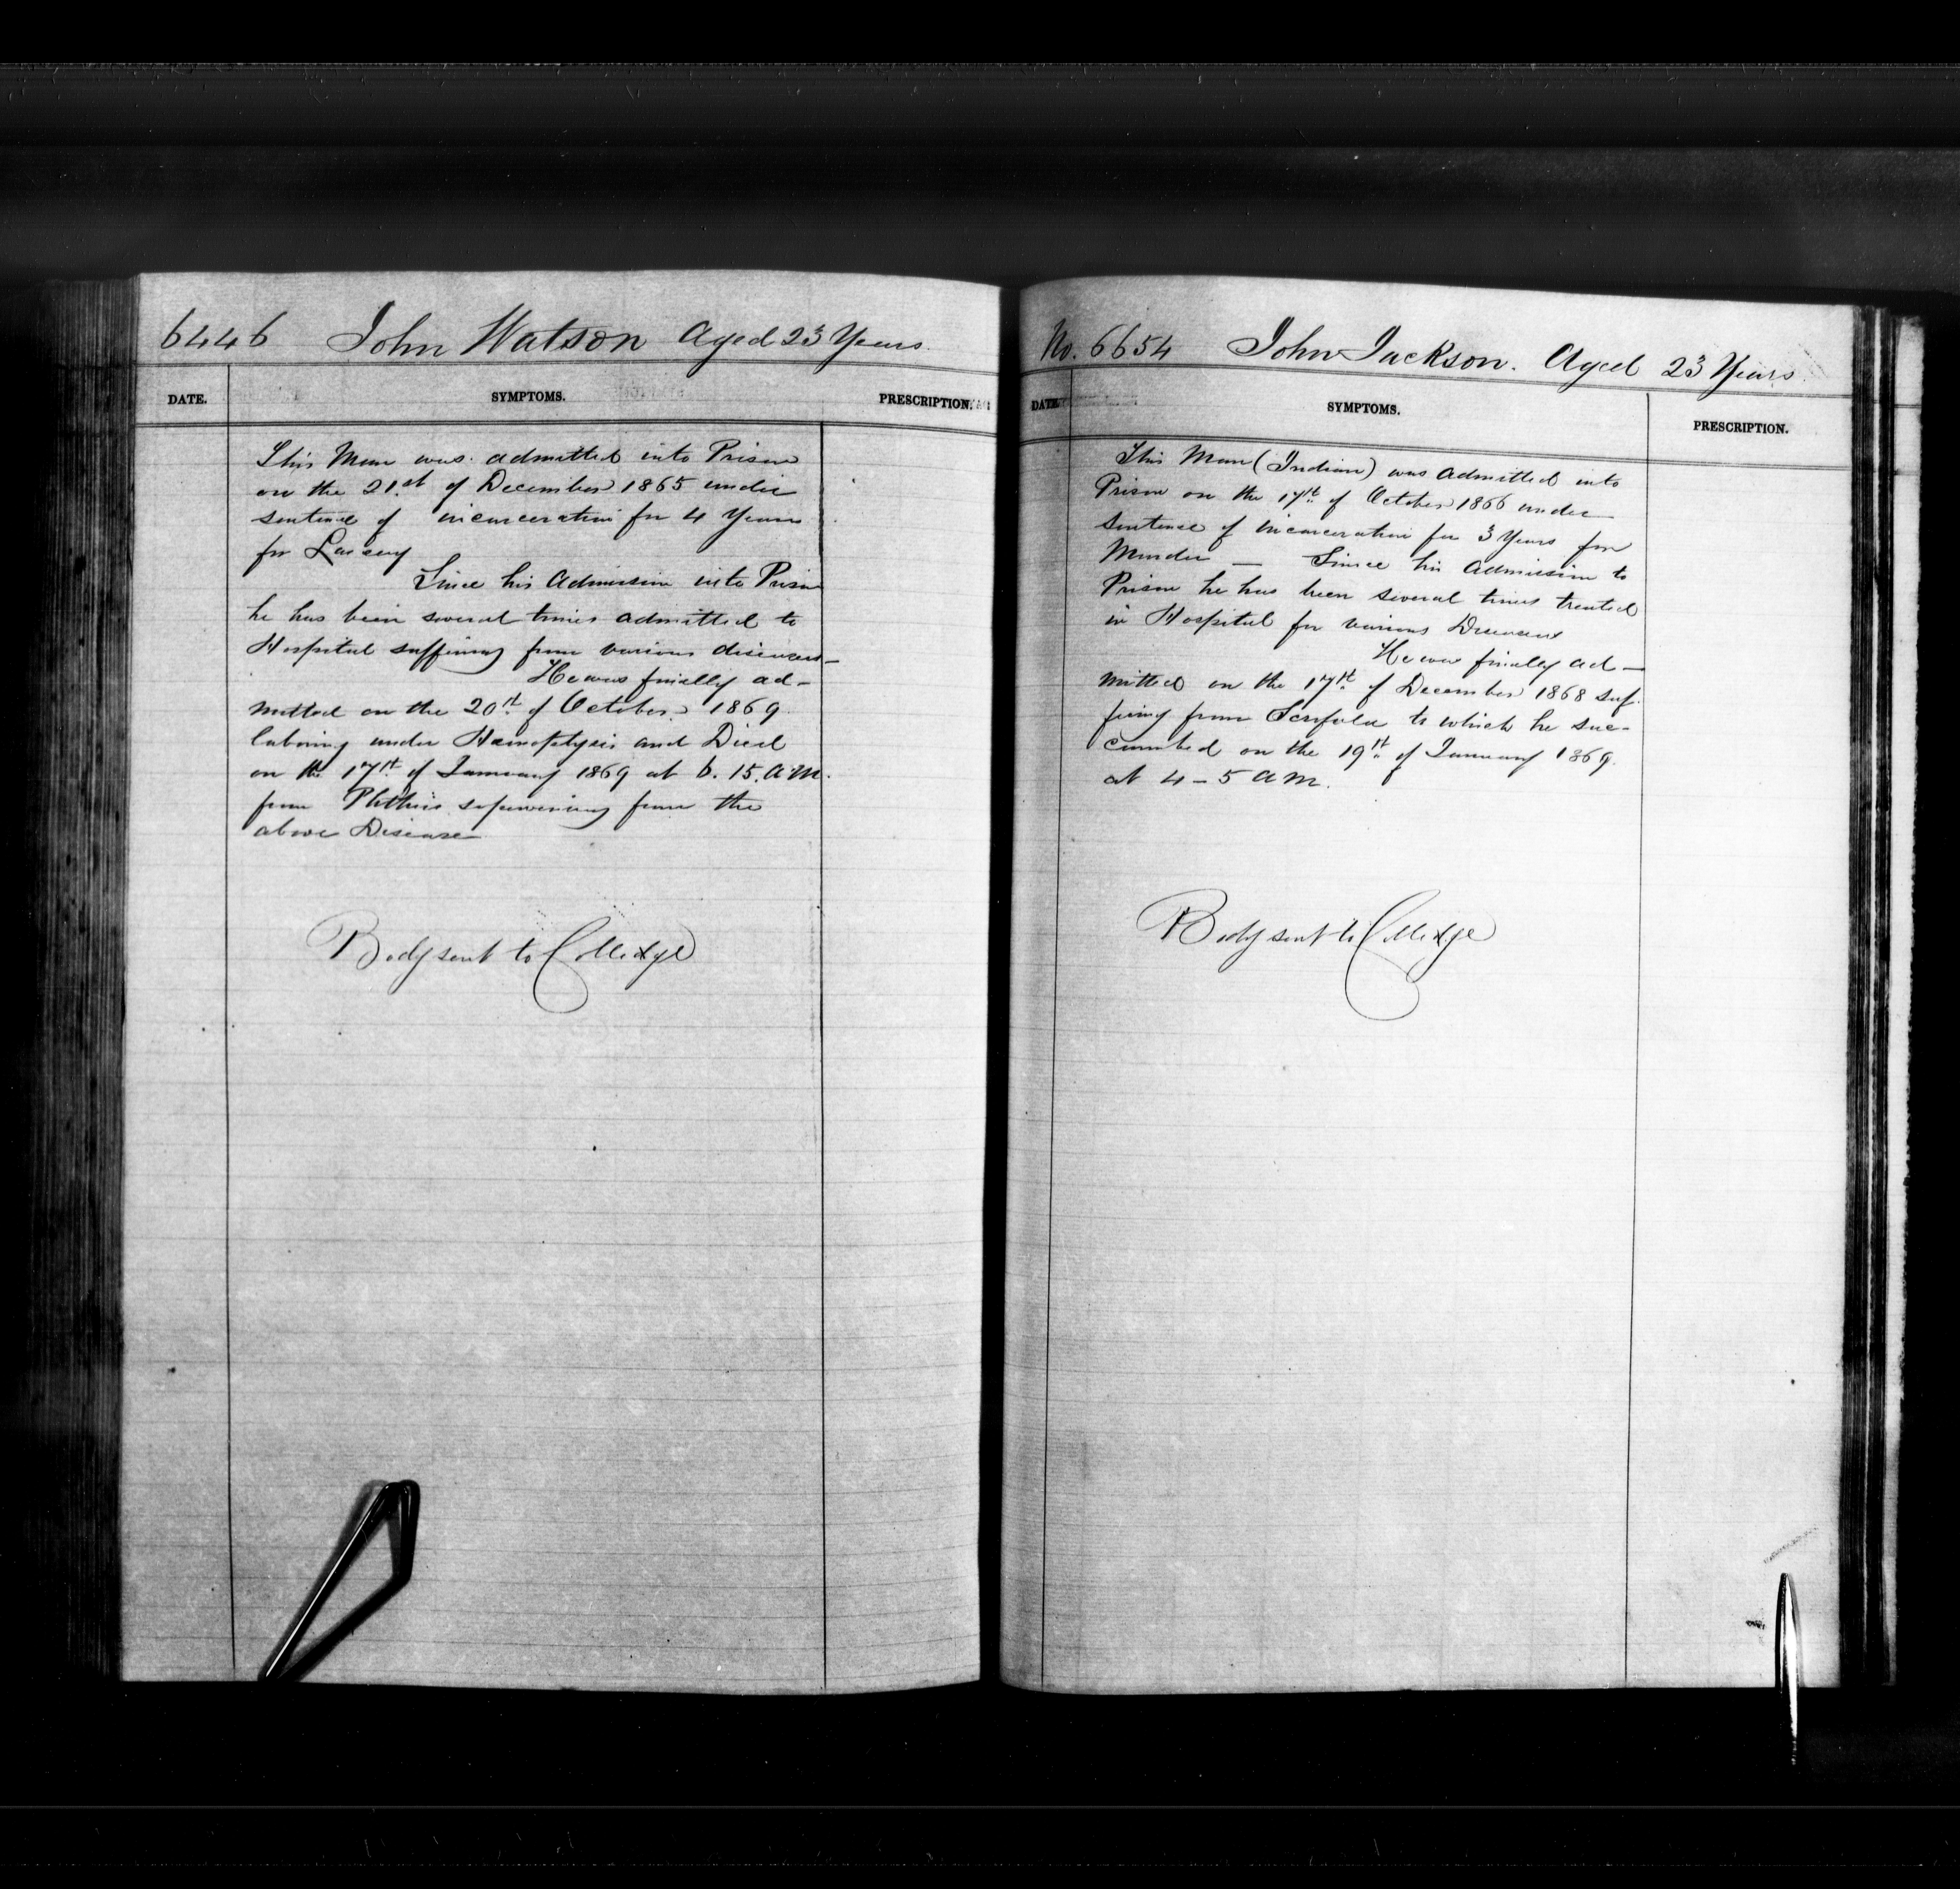 6446 John Watson Aged 23 Years.
DATE. SYMPTOMS. PRESCRIPTION.
This Man was admitted into Prison
on the 21st of December 1865 under
sentence of incarceration for 4 Years
for Larceny
Since his Admission into Prison
he has been several times admitted to
Hospital suffering from various diseases—
He was finally ad-
mitted on the 20th of October 1869
laboring under Hamoptysis and Died
on the 17th of January 1869 at 6.15. A.M.
from Phthisis supervening from the
above Disease
Body sent to Colledge
No. 6654 John Jackson. Aged 23 Years.
DATE. SYMPTOMS. PRESCRIPTION.
This Man (Indian) was Admitted into
Prison on the 17th of October 1866 under
sentence of incarceration for 3 Years for
Murder — Since his Admission to
Prison he has been several times treated
in Hospital for various Diseases
He was finally ad—
mitted on the 17th of December 1868 suf-
fering from Scrofula to which he suc-
cumbed on the 19th of January 1869.
at 4-5 AM.
Body sent to Colledge